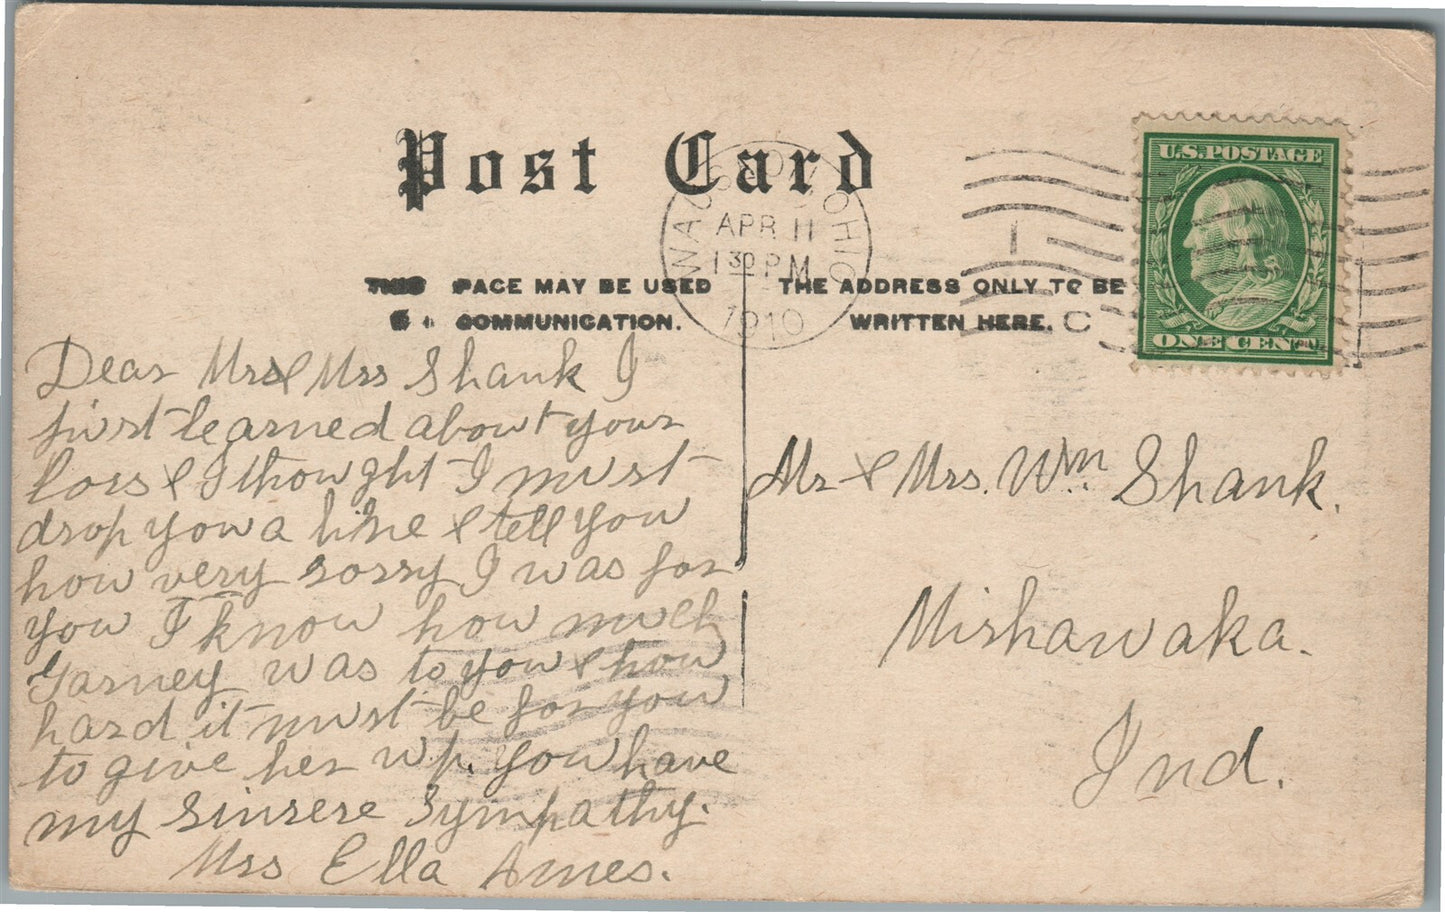 Post Card
APR 11
1 30 PM
1910
U.S. POSTAGE
ONE CENT
THIS SPACE MAY BE USED
COMMUNICATION.
THE ADDRESS ONLY TO BE
WRITTEN HERE.
Dear Mr & Mrs Shank I
first learned about your
loss & I thought I must
drop you a line & tell you
how very sorry I was for
you I know how much
was to you & how
hard it must be for you
to give her up. you have
my sinsere sympathy.
Mrs Ella Ames.
Mr & Mrs. Wm. Shank.
Mishawaka.
Ind.